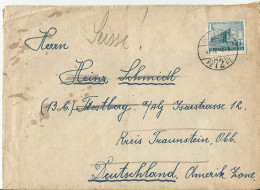 Suisse!
Herrn
Heinz Schmidl
(13.b.) Isarstrasse 12
Kreis Traunstein, Obb.
Deutschland, Amerik Zone